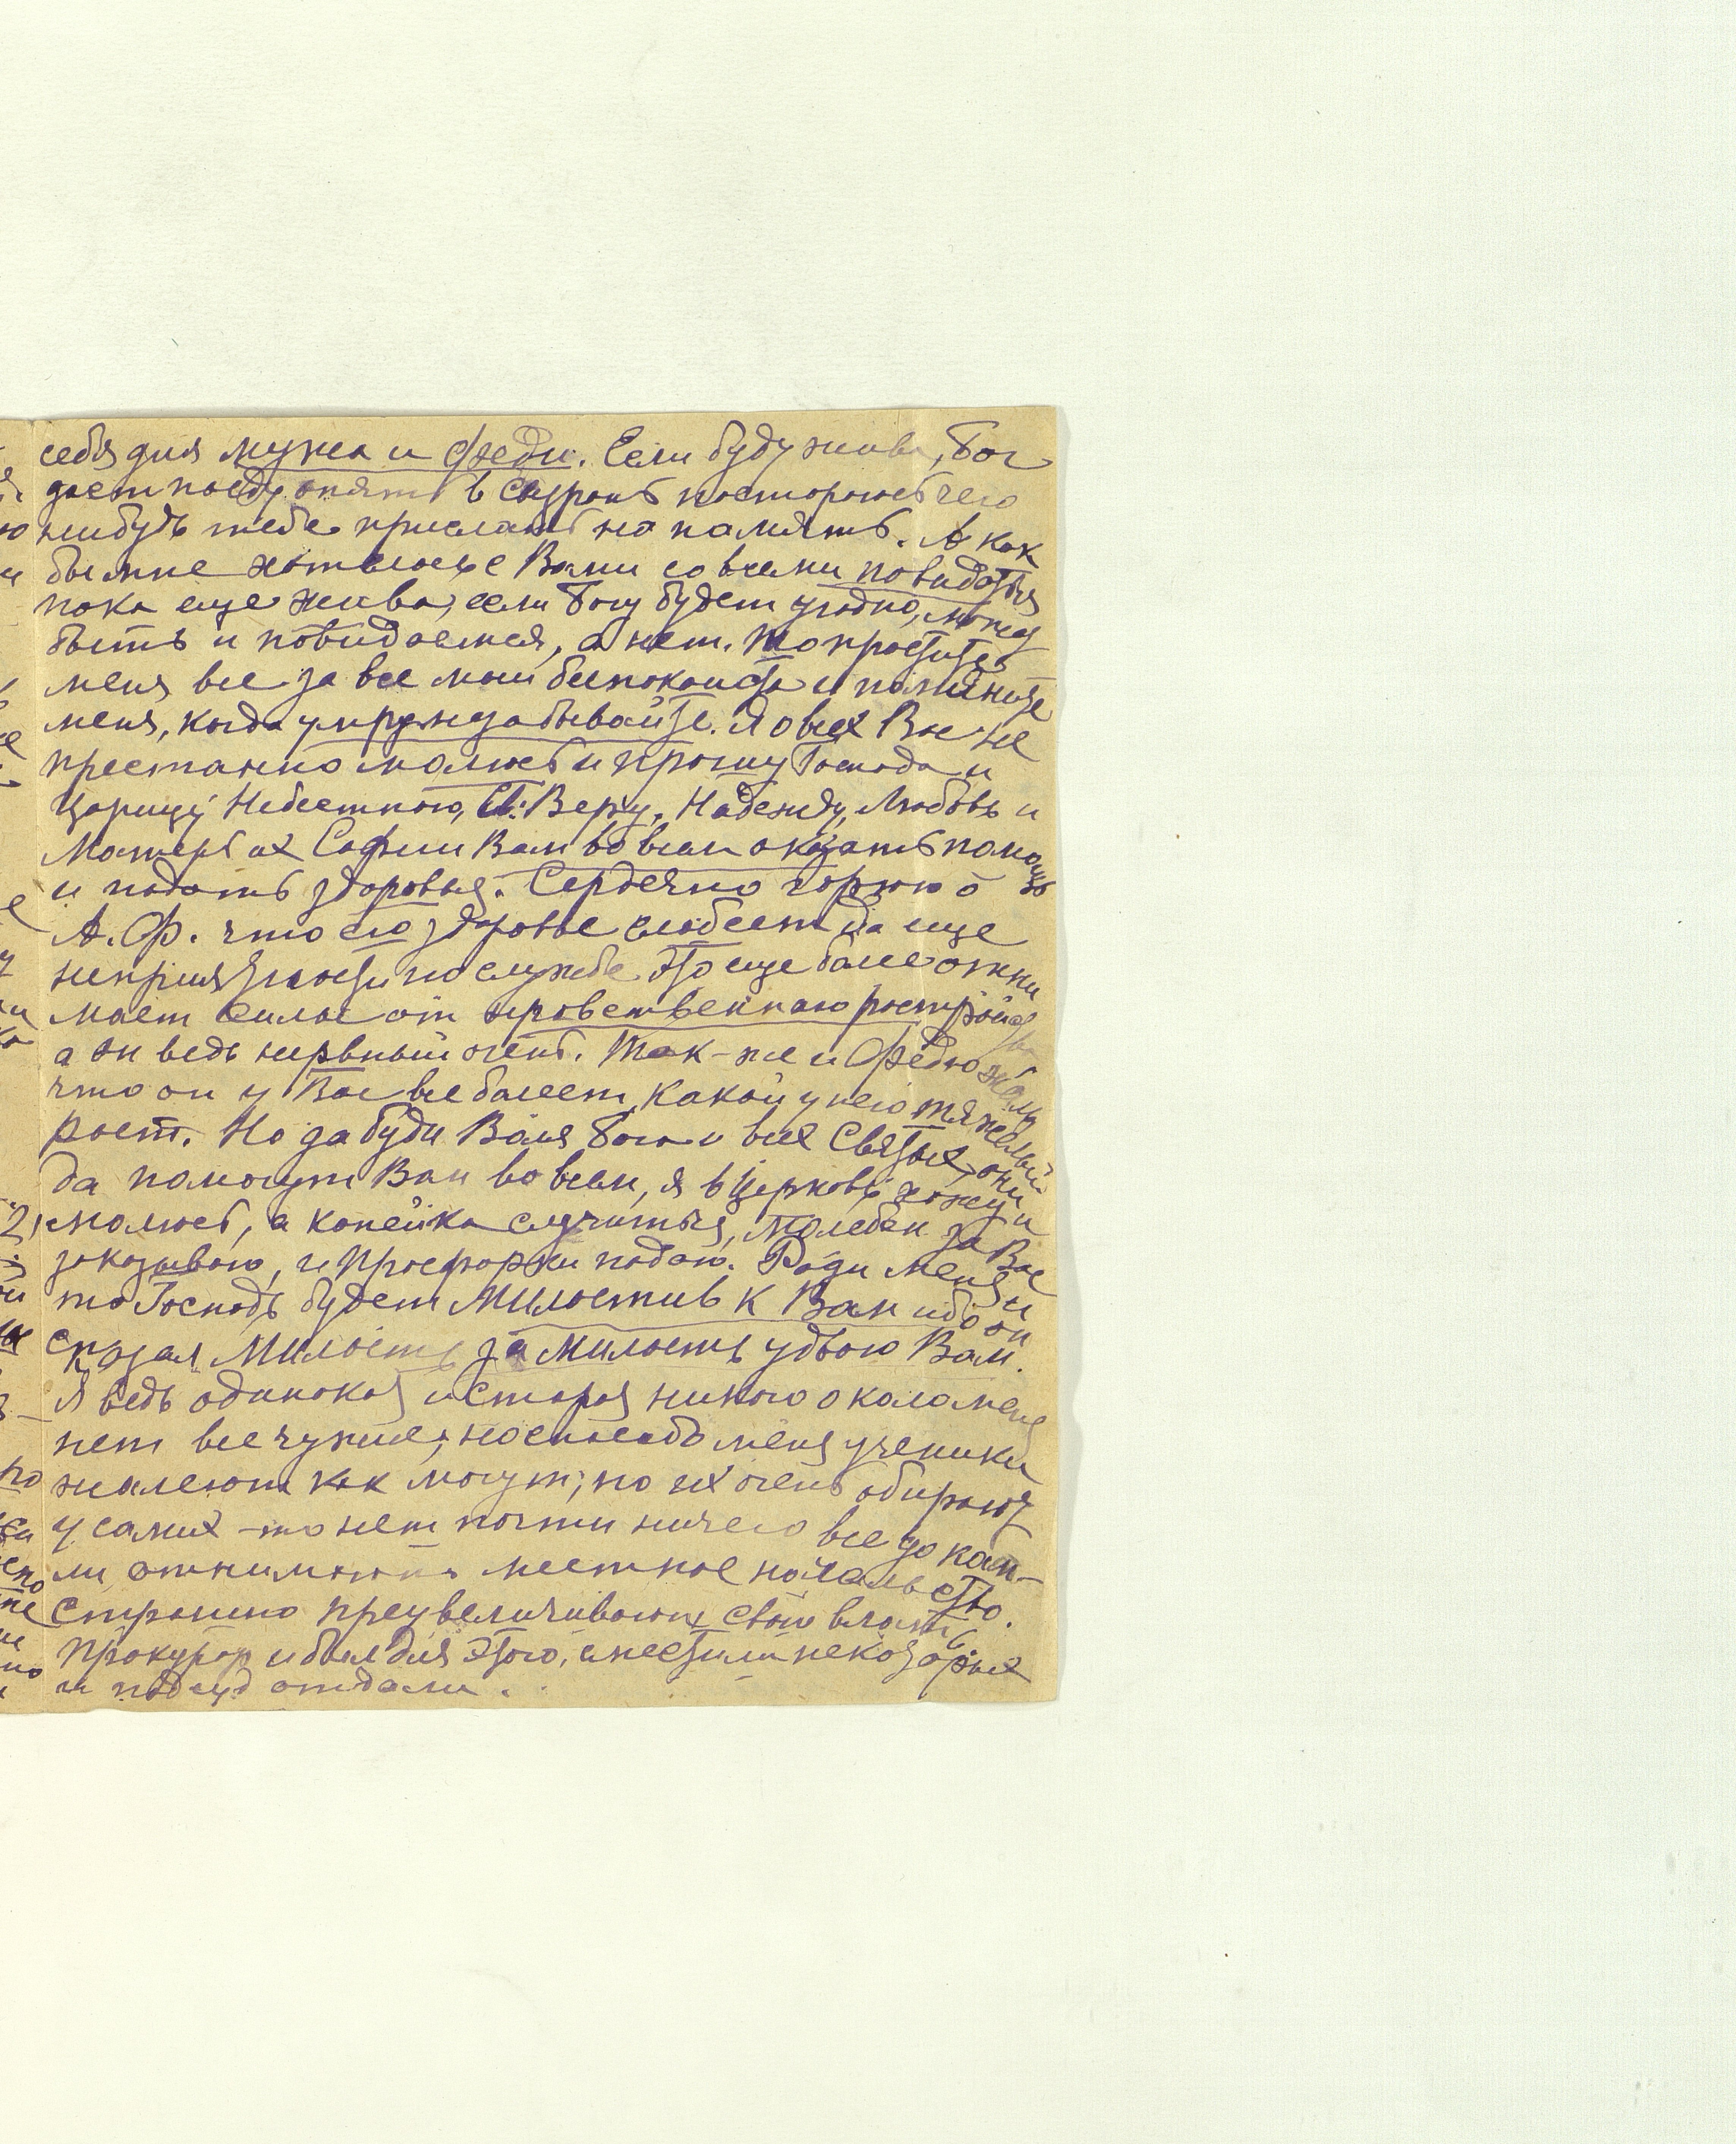 себя для мужа и Феди. Если буду жива, Бог
даст поеду опять в постораюсь чего
нибудь тебе прислать на память. А как
бы мне хотелось с Вами со всеми повидаться
пока еще жива, если Богу будет угодно, может
быть и повидаемся, а нет. То простите
меня все за все мои беспокойства и помяните
меня, когда умру не забывайте. Я о всех Вас не
престанно молюсь и прошу Господа и
Царицу Небесную, Св. Веру, Надежду, Любовь и
Матерь их Софии Вам во всем оказать помощь
и подать здоровья. Сердечно горюю о
А. Ф. что его здоровье слабеет да еще
неприятности по службе это еще более отни
мает силы от нравственнаго растройства
а он ведь нервный очень. Так-же и Федю жаль
что он у Вас все болеет, какой у него тяжелый
рост. Но да буди Воля Бога и всех Святых, они
да помогут Вам во всем, я в Церковь хожу и
молюсь, а копейка случиться, молебен за Вас
заказываю, и просфорки подаю. Ради меня и
то Господь будет Милостив к Вам ибо он
сказал Милость за милость удвою Вам.
Я ведь одинокая и старая никого около меня
нет все чужие, но спасибо меня ученики
жалеют как могут, но их очень обирают
у самих-то нет почти ничего все до кап-
ли отнимают местное начальство.
Страшно преувеличивают свою власть.
Прокурор и был для этого, сместили некоторых
и под суд отдали.